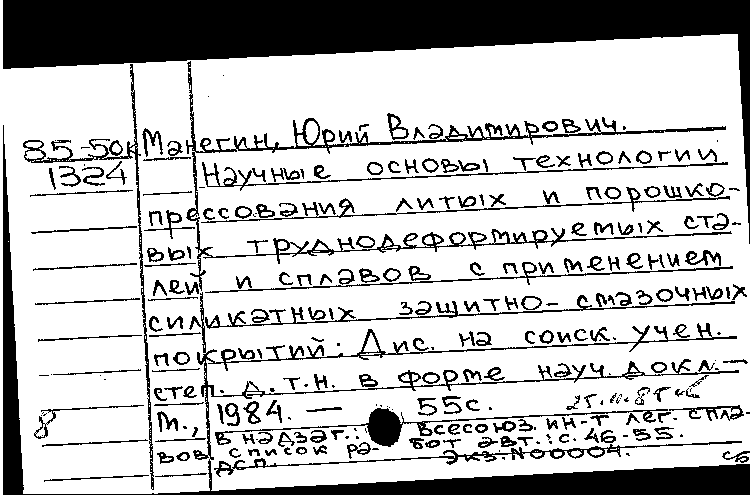 85-50к Манегин, Юрий Владимирович.
1324 Научные основы технологии
прессования литых и порошко-
вых труднодеформируемых ста-
лей и сплавов с применением
силикатных защитно-смазочных
покрытий: Дис. на соиск. учен.
степ. д.т.н. в форме науч. докл.—
8 М., 1984. — 55с.
В надзаг.: Всесоюз. ин-т лег. спла-
вов. Список ра- бот авт.: с. 46-55.
ДСП. Экз. N00004. сб